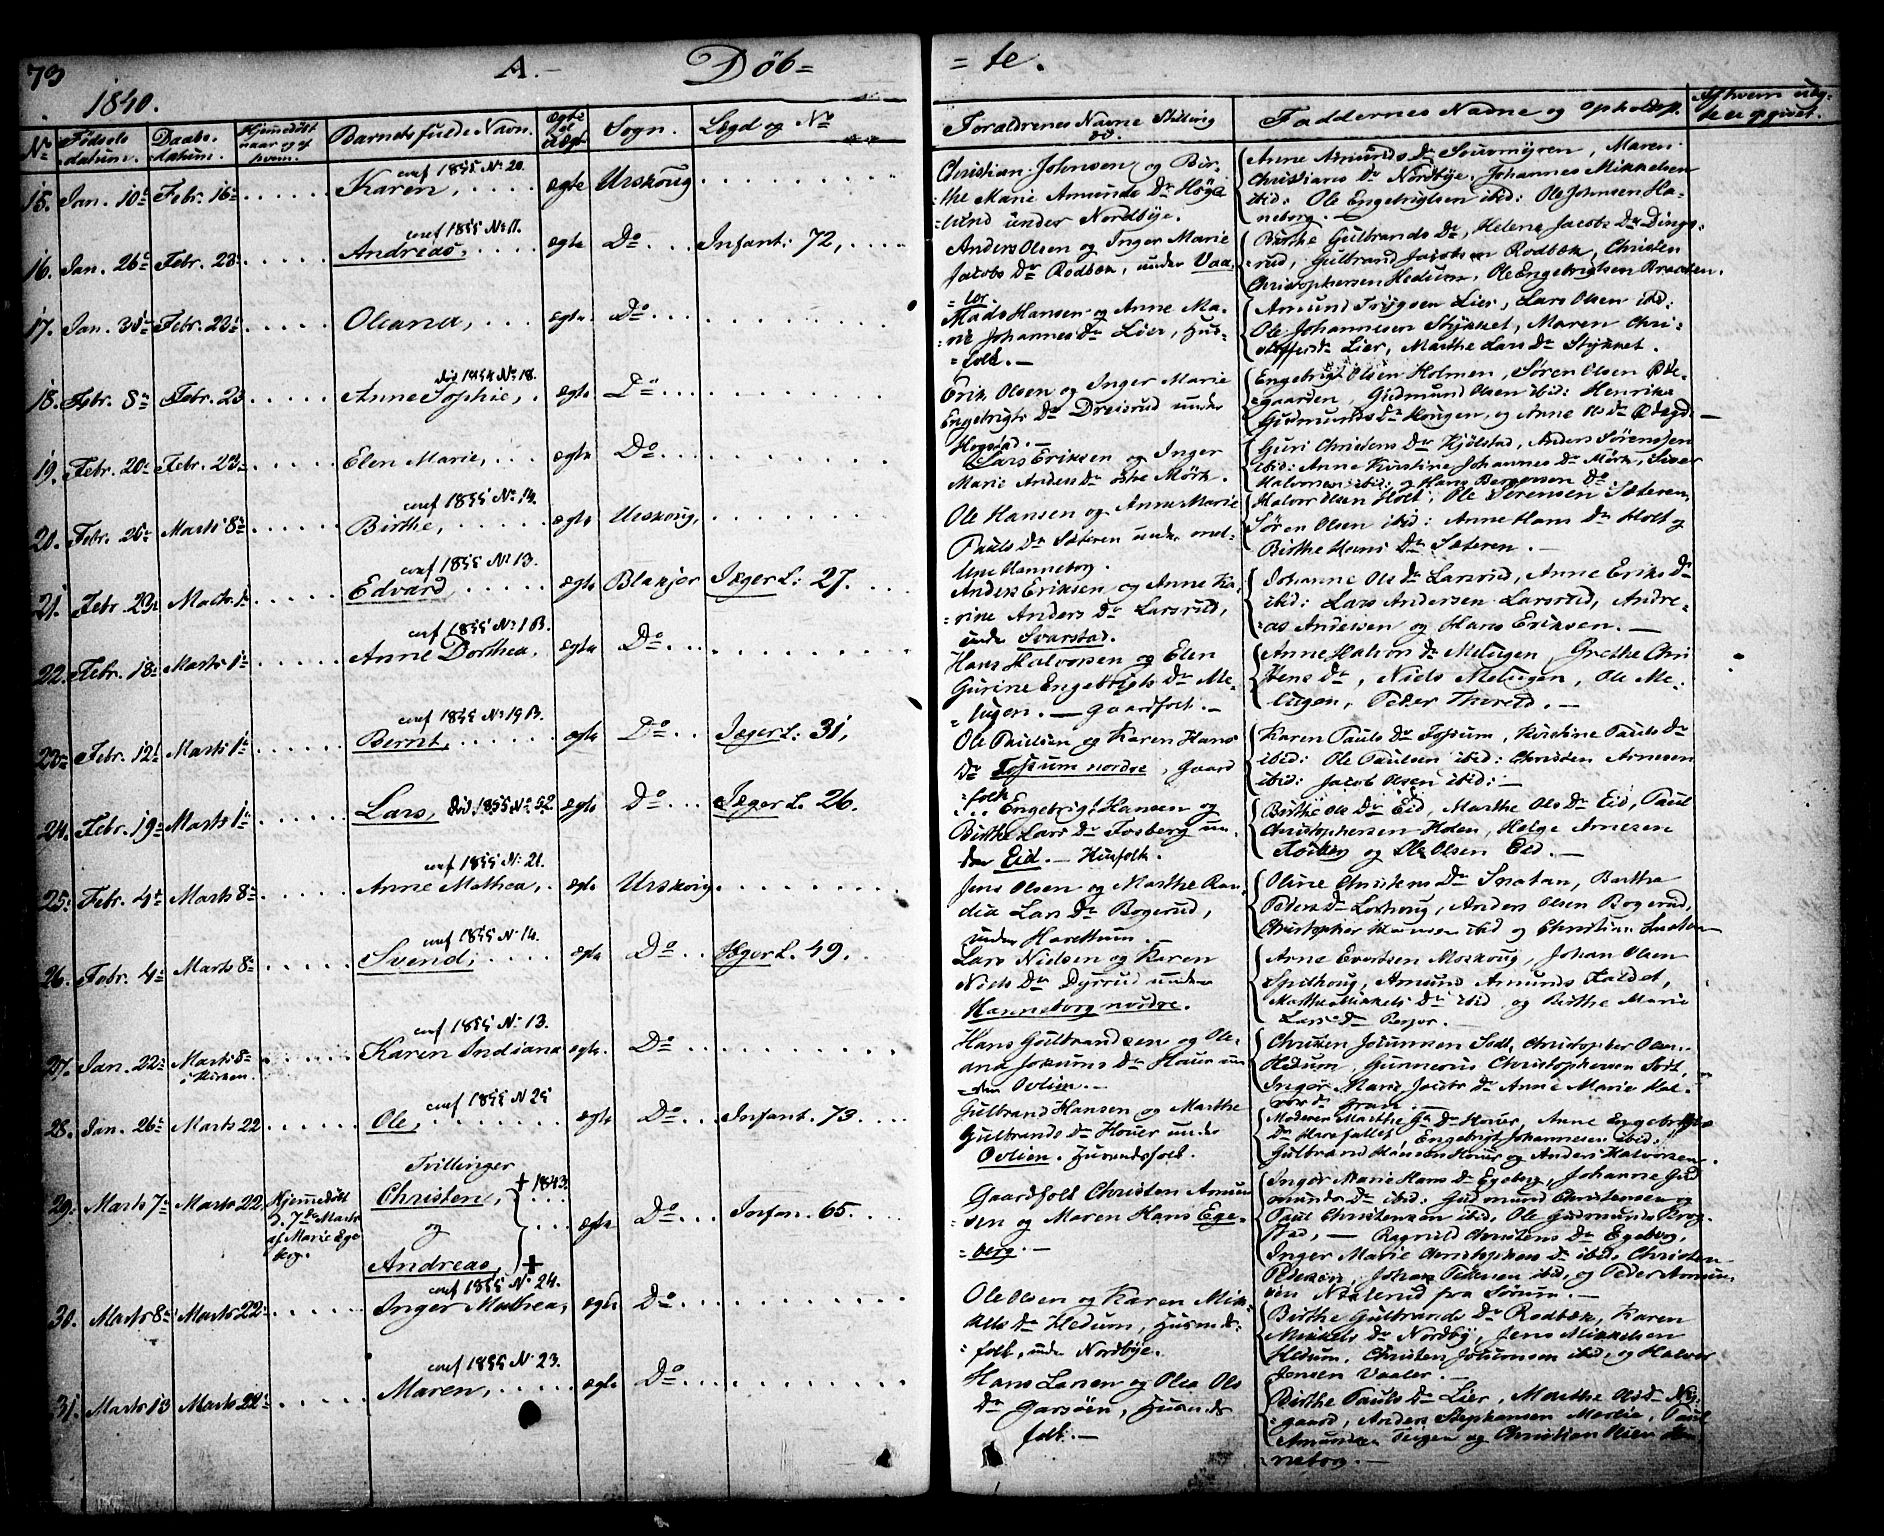 73 A. Döb= = te.
1840.
No Födsels datum. Daabs datum. Hjemmedöbt naar og af hvem. Barnets fulde Navn. Ægte eller Uægte Sogn. Lægd og No Foraldrenes Navne Stilling Faddernes Navne og Opholdsst. Af hvem udg-
conf 1855 No 20.
15. Jan. 10de Febr. 16de Karen, ægte Urskoug
Christian Johnsen og Bir-
the Marie Amunds Dr Höge
lund under Nordbÿe.
Anne Amunds Dr Souvmÿren, Maren
Christians Dr Nordbÿe, Johannes Mikkelsen
ibid: Ole Engebrigtsen ibid: Ole Johnsen Ha-
neborg. -
conf 1855 No 11.
16. Jan. 26de Febr. 23de Andreas, ægte Do Infant: 72,
Anders Olsen og Inger Marie
Jacobs Dr Rodbæk, under Vaa-
= ler.
Birthe Gulbrands Dr, Helene Jacobs Dr Dings-
=rud, Gulbrand Jacobsen Rodbæk, Christen
Christophersen Hedum, Ole Engebrigtsen Braaten.
17. Jan. Febr. 23de Oleana, ægte Do
Mads Hansen og Anne Ma-
rie Johannes Dr Lier, Hus-
= folk. -
Amund Trÿgsen Lier, Lars Olsen ibid:
Ole Johannesen Stÿkket, Maren Chri-
stoffers Dr Lier, Marthe Lars Dr Stÿkket.
18. Febr. 8de Febr. 23 Anne Sophie, ægte Do
Erik Olsen og Inger Marie
Engebrigts Dr Dreierud under
Hogsæd. -
Engebrigt Olsen Holmen, Sören Olsen Öde-
gaarden, Gudmund Olsen ibid: Henrikke
Gudmunds Dr Hougen, og Anne Ols Dr Ödegd. -
19. Febr. 20de Febr. 23de Elen Marie, ægte Do
Lars Eriksen og Inger
Marie Anders Dr östre Mörk.
Guri Christens Dr Kjölstad, Anders Sörensen
ibid: Anne Kirstine Johannes Dr Mörk, Siver
Halvorsen ibid: og Hans Börgersen Do
conf 1855 No 14.
20. Febr. 26de Marts 8de Birthe, ægte Urskoug,
Ole Hansen og Anne Marie
Pauls Dr Sæteren under mel-
lem Hanneborg.
Halvor Olsen Holt, Ole Sörensen Sæteren,
Sören Olsen ibid: Anne Hans Dr Holt og
Birthe Hans Dr Sæteren. -
conf 1855 No 13.
21. Febr. 23de Marts 1de Edvard, ægte Blakjer Jæger L: 27.
Anders Eriksen og Anne Ka-
=rine Anders Dr Larsrud,
unde Svarstad.
Johanne Ols Dr Larsrud, Anne Eriks Dr
ibid: Lars Andersen Larsrud, Andre-
=as Andersen og Hans Eriksen. -
conf 1855 No 1 B.
22. Febr. 18de Marts 1de Anne Dorthea, ægte Do
Hans Halvorsen og Elen
Gurine Engebrigts Dr Me-
= lugen. - Gaardfolk. -
Anne Halvors Dr Melugen, Grethe Chri
stens Dr, Niels Melugen, Ole Me-
lugen, Peder Therud. -
conf 1855 No 19 B.
23. Febr. 12te Marts 1de Bernt, ægte Do Jæger L: 31,
Ole Paulsen og Karen Hans
Dr Fossum nordre, Gaard
= folk
Karen Pauls Dr Fossum, Kirstine Pauls Dr
ibid: Ole Paulsen ibid: Christen Arnesen
ibid: Jacob Olsen ibid: -
24. Febr. 19de Marts 1de Lars, 1855 No 52. ægte Do Jæger L. 26.
Engebrigt Hansen og
Birthe Lars Dr Fosberg un-
der Eid. - Husfolk.
Birthe Ols Dr Eid, Marthe Ols Dr Eid, Paul
Christophersen Holen, Helge Arnesen
og Ole Olsen Eid. -
conf 1855 No 21.
25. Febr. 4de Marts 8de Anne Mathea, ægte Urskoug
Jens Olsen og Marthe Ran-
dia Lars Dr Bogerud,
under Harethun. -
Oline Christens Dr Snatan, Berthe
Peders Dr Loshoug, Anders Olsen Bogerud,
Christopher Hansen ibid og Christian Snatan
conf 1855 No 14.
26. Febr. 4de Marts 8de Svend, ægte Do Jæger L. 49.
Lars Nielsen og Karen
Niels Dr Dÿrrud under
Hanneborg nordre.
Arne Evertsen Moskoug, Johan Olsen
Spilhoug, Amund Amunds Faldet,
Marthe Mikkels Dr ibid, og Berthe Marie
Lars Dr Berger. -
conf 1855 No 13.
27. Jan. 22de Marts 8de i Kirken. Karen Indiana ægte. Do
Hans Gulbrandsen og Ole-
ana Jokums Dr Houer un
=der Ovlien. -
Christen Jokumsen Sodt, Christopher Olsen
Hedum, Gunnerius Christophersen Sört,
Inger Marie Jacobs Dr Anne Marie Hal-
vors Dr Gran. -
conf 1855 N 25
28. Jan. 26de Marts 22 Ole, ægte Do Infant. 73.
Gulbrand Hansen og Marthe
Gulbrands Dr Houer under
Ovlien. Husmdsfolk.
Moderen Marthe Gs Dr Houer, Anne Engebrigts
Dr Harefallet, Engebrigt Johannesen ibid,
Gulbrand Hansen Houer og Anders Halvorsen.
29. Marts 7de Marts 22. Hjemmedöbt d. 7de Marts af Marie Ege berg. Tvillinger Christen, + 1843. og Andreas, + ægte Do Infan. 65.
Gaardfolk Christen Amun
=sen og Maren Hans Ege-
= berg. -
Inger Marie Hans Dr Egeberg, Johanne Gud
munds Dr ibid: Gudmund Christensen og
Paul Christensen ibid, Ole Gudmunds Krog-
stad, - Ragnild Christens Dr Egeberg,
Inger Marie Christophers Dr ibid: Christen
Pedersen, Johan Pedersen ibid, og Peder Amun
sen fra Sörum. -
conf 1855 No 24.
30. Marts 8de Marts 22de Inger Mathea, ægte Do
Ole Olsen og Karen Mik-
kels Dr Hedum, Husmds-
= folk, unde Nordbÿe.
Birthe Gulbrands Dr Rodbæk, Karen
Mikkels Dr Nordbÿ, Jens Mikkelsen
Hedum, Christen Jokumsen ibid, og Halvor
Jensen Vaaler. -
conf 1855 N. 23.
31. Marts 13 Marts 22de Maren, ægte Do
Hans Larsen og Olea Ols
Dr Garsöen, Husmds
folk. -
Birthe Pauls Dr Lier, Marthe Ols Dr Nÿ-
=gaard, Anders Stephansen Paul
Amundsen Teigen og Christian Olsen Han-
neborg. -